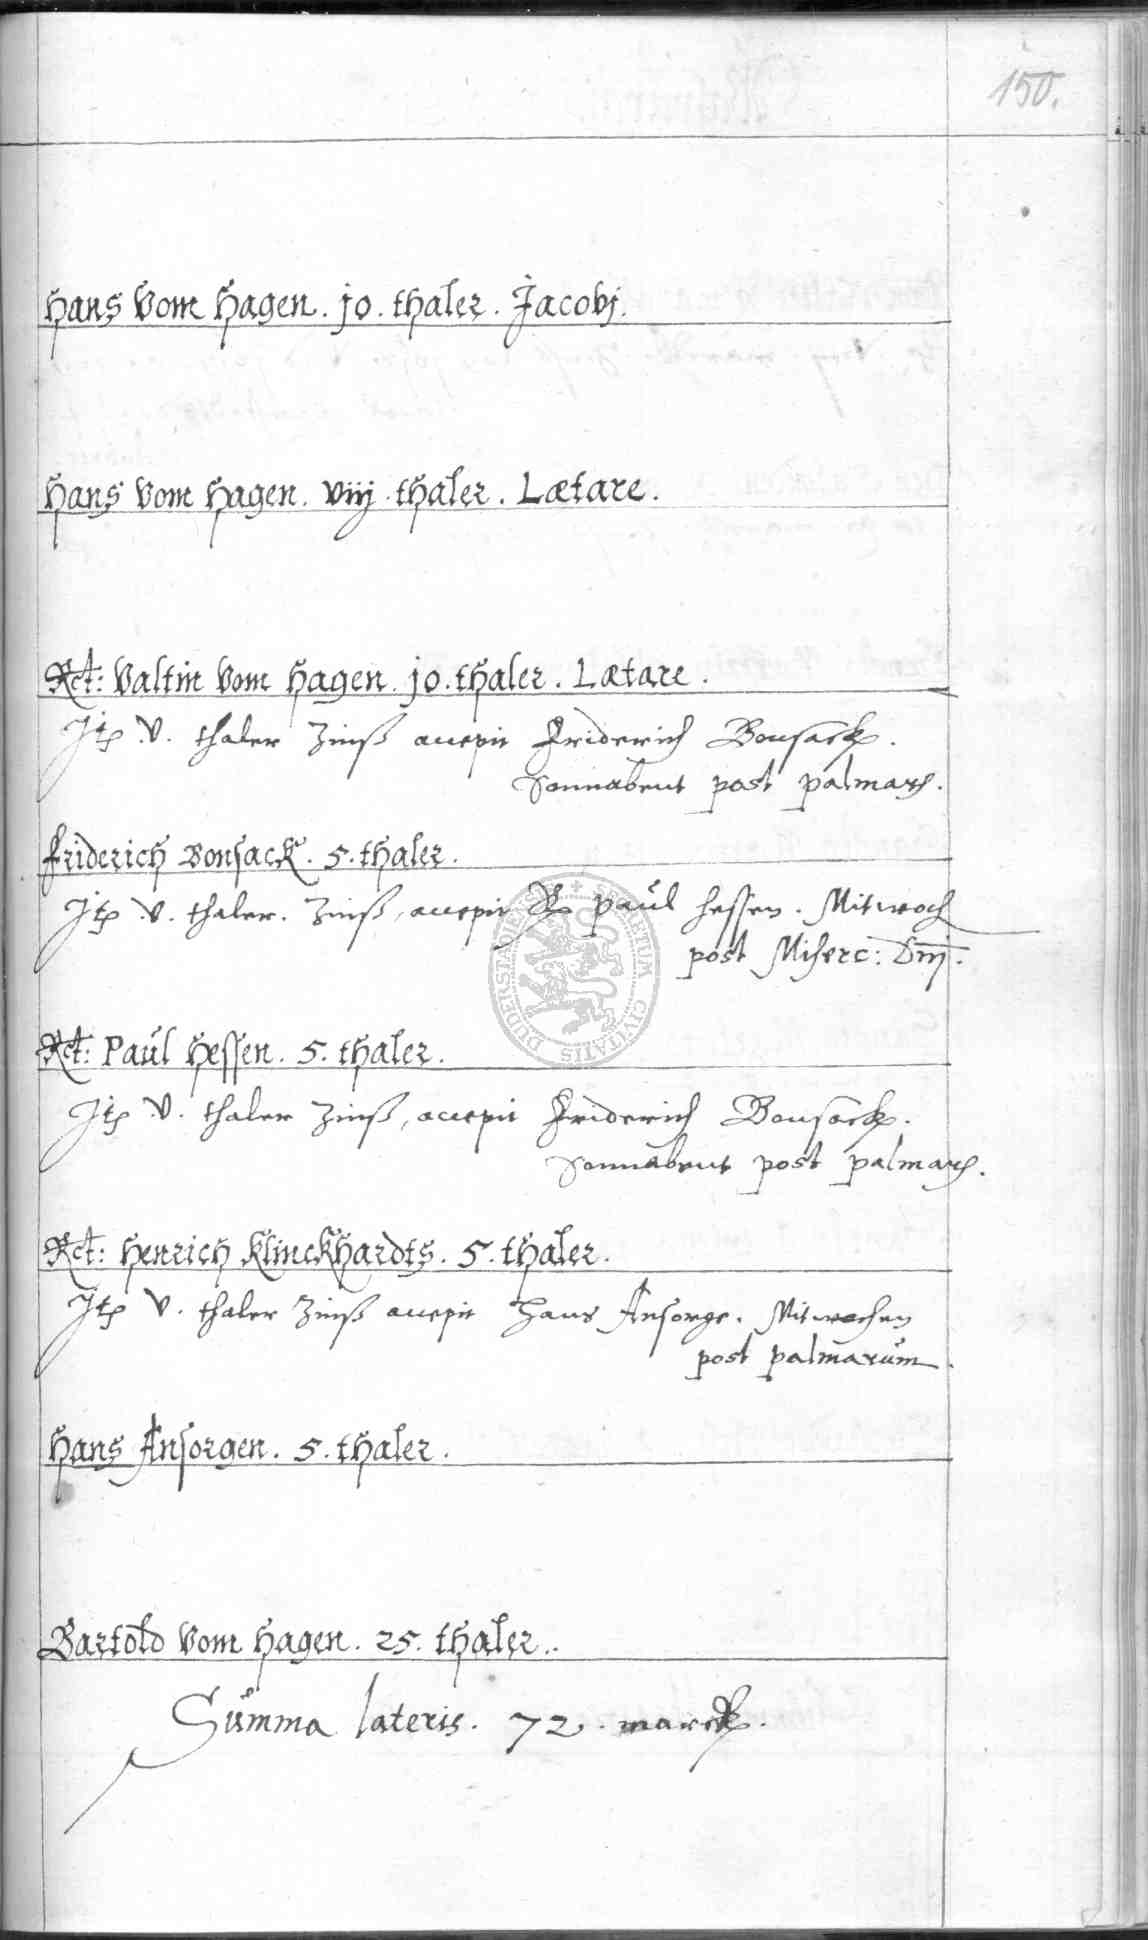 150.
Hans Vom Hagen. jo. thaler. Jacobj.
Hans Vom Hagen. viij. thaler. Lætare.
Rct: Valtin Vom Hagen. jo. thaler. Lætare.
It. V. thaler Zinß accepit Friderich Bonsack.
Sonnabent post palmarum.
Friderich Bonsack. 5. thaler.
It. V. thaler. Zinß, accepit H. Paul Hessen. Mitwoch
post Miserc: Dnj.
Rct: Paul Hessen. 5. thaler.
It. V. thaler Zinß, accepit Friderich Bonsack.
Sonnabent post palmarum.
Rct: Henrich Klinckhardts. 5. thaler.
It. V. thaler Zinß accepit Hans Ansorge. Mitwochen
post palmarum.
Hans Ansorgen. 5. thaler.
Bartold Vom Hagen. 25. thaler..
Summa lateris. 72. marck.
SECRETUM CIVITATIS DUDERSTADENSIS